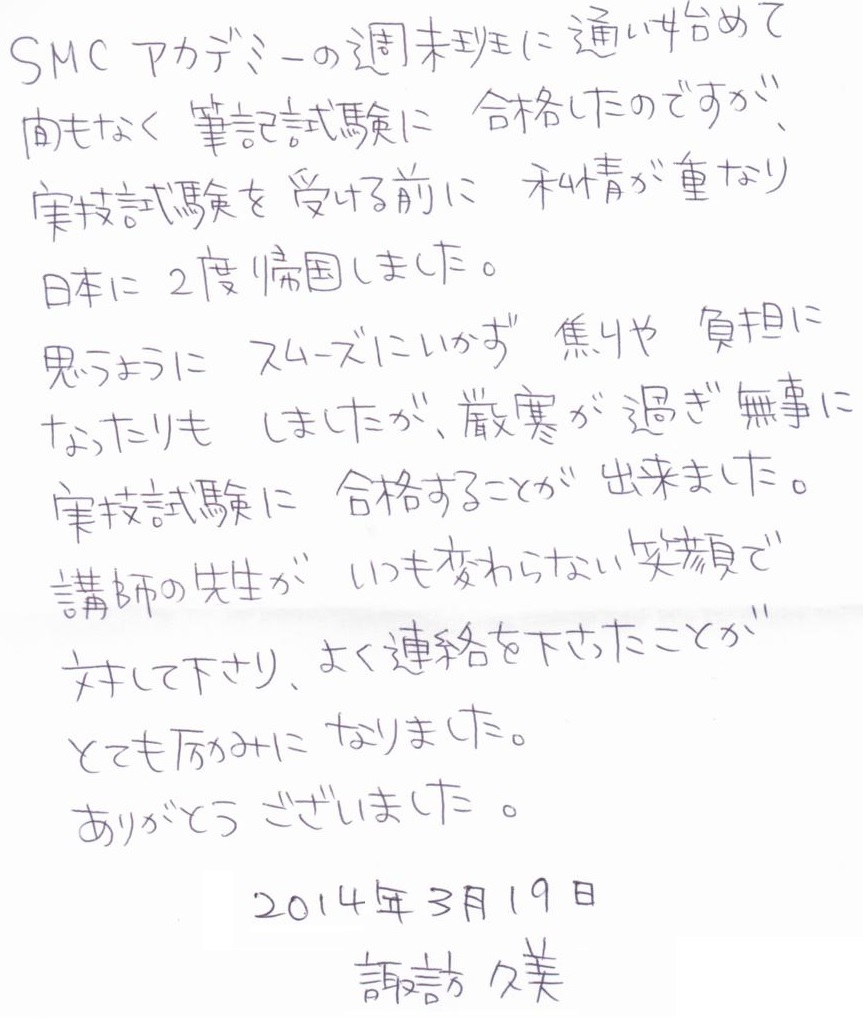 SMC アカデミーの週末班に通い始めて
間もなく 筆記試験に 合格したのですが、
実技試験を 受ける前に 私情が重なり
日本に 2度帰国しました。
思うように スムーズにいかず 焦りや 負担に
なったりも しましたが、厳寒が過ぎ無事に
実技試験に 合格することが 出来ました。
講師の先生が いつも変わらない笑顔で
対して下さり、よく連絡を下さったことが
とても励みに なりました。
ありがとう ございました。
2014年3月19日
諏訪 久美